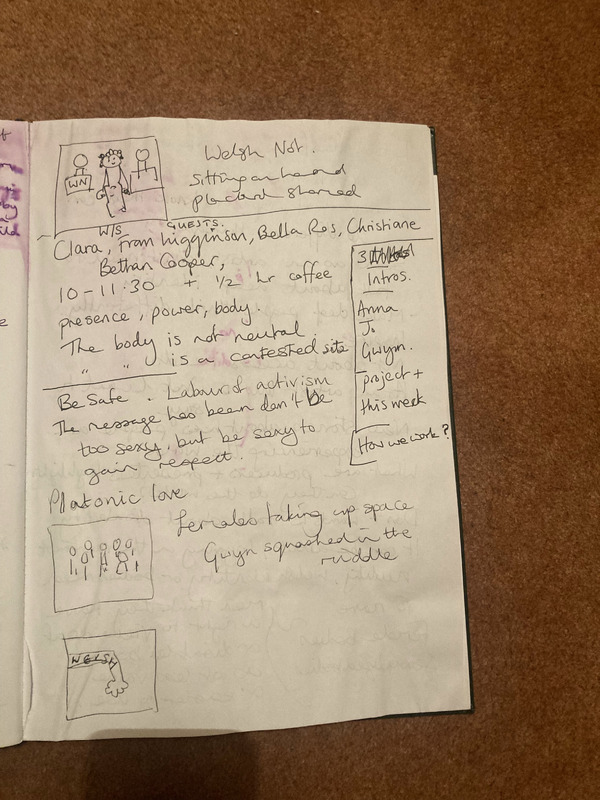 WN
Welsh Not.
Sitting on hand
placard shared
W/S GUESTS.
Clara, Fran Higginson, Bella Ros, Christiane
Bethan Cooper,
10-11:30 + 1/2 hr coffee
presence, power, body.
The body is not neutral.
" " is a contested site
3
Intros.
Anna
Jo
Gwyn.
project +
this week
How we work?
Be Safe. Labour of activism
The message has been don't be
too sexy, but be sexy to
gain respect.
Platonic love
Females taking up space
Gwyn squashed in the
middle
WELSH